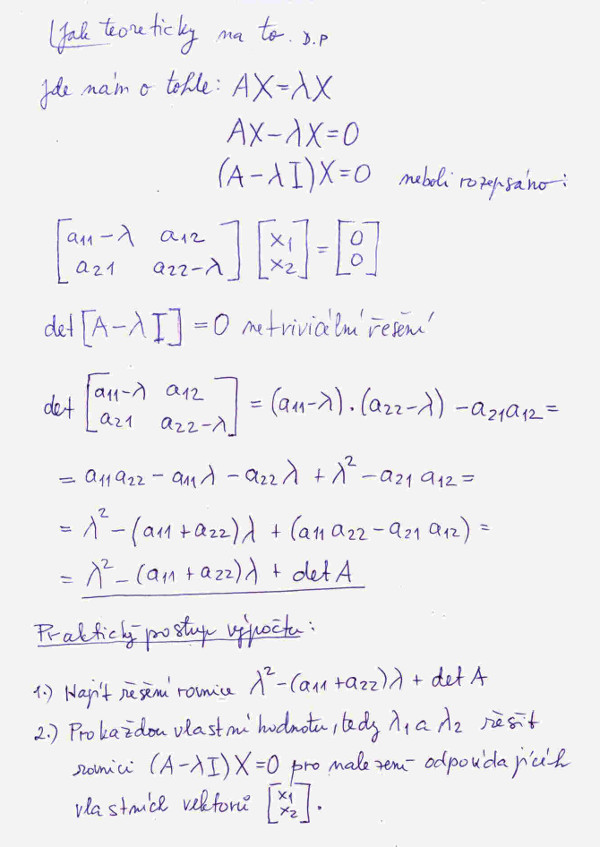 Jak teoreticky na to. D.P
Jde nám o tohle: AX=λX
AX-λX=0
(A-λI)X=0 neboli rozepsáno:
[a11-λ a12] [x1] = [0]
[a21 a22-λ] [x2] [0]
det[A-λI]=0 netriviální řešení
det [a11-λ a12] = (a11-λ).(a22-λ) - a21a12=
[a21 a22-λ]
= a11a22 - a11λ - a22λ + λ² - a21 a12 =
= λ² - (a11+a22)λ + (a11 a22 - a21 a12) =
= λ² - (a11+a22)λ + det A
Praktický postup výpočtu:
1.) Najít řešení rovnice λ²-(a11+a22)λ + det A
2.) Pro každou vlastní hodnotu, tedy λ1 a λ2 řešit
rovnici (A-λI)X=0 pro nalezení odpovídajících
vlastních vektorů [x1 x2].